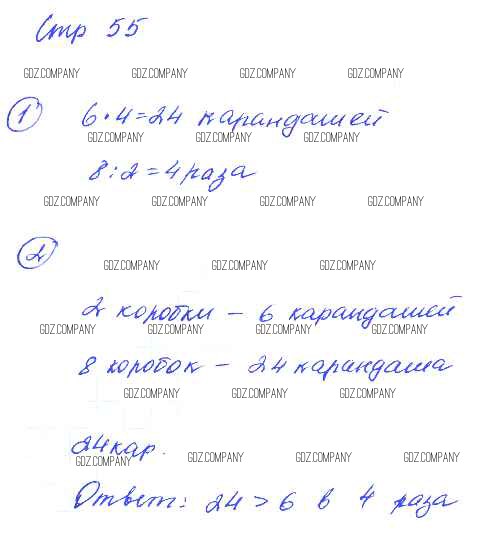 Стр 55
GDZ.COMPANY GDZ.COMPANY GDZ.COMPANY GDZ.COMPANY
1 6 · 4 = 24 карандашей
GDZ.COMPANY GDZ.COMPANY GDZ.COMPANY
8 : 2 = 4 раза
GDZ.COMPANY GDZ.COMPANY GDZ.COMPANY GDZ.COMPANY
2
GDZ.COMPANY GDZ.COMPANY GDZ.COMPANY
2 коробки – 6 карандашей
GDZ.COMPANY GDZ.COMPANY GDZ.COMPANY GDZ.COMPANY
8 коробок – 24 карандаша
GDZ.COMPANY GDZ.COMPANY GDZ.COMPANY
24 кар.
GDZ.COMPANY GDZ.COMPANY GDZ.COMPANY GDZ.COMPANY
Ответ: 24 > 6 в 4 раза